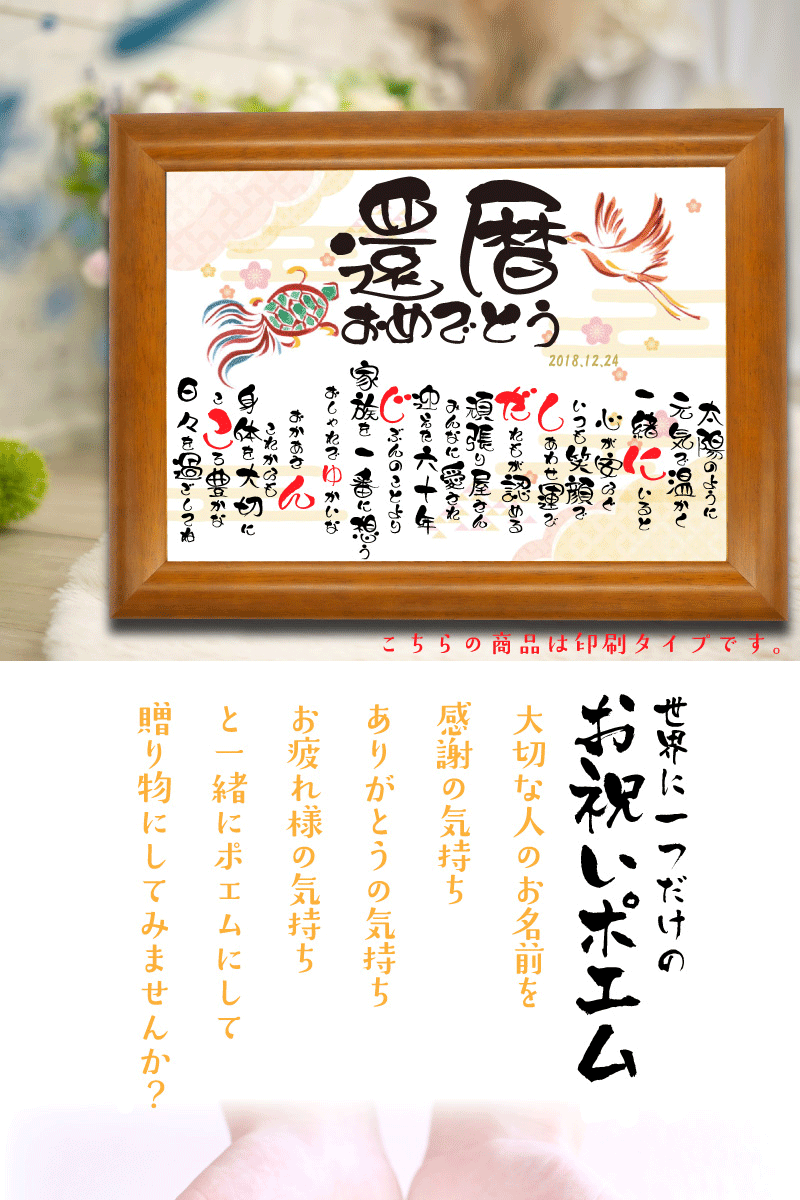 還暦
おめでとう
2018.12.24
太陽のように
元気で温かく
一緒にいると
心が安らぐ
いつも笑顔で
しあわせ運び
だれもが認める
頑張り屋さん
みんなに愛され
迎えた六十年
じぶんのことより
家族を一番に想う
おしゃれでゆかいな
おかあさん
これからも
身体を大切に
こころ豊かな
日々を過ごしてね
こちらの商品は印刷タイプです。
世界に一つだけの
お祝いポエム
大切な人のお名前を
感謝の気持ち
ありがとうの気持ち
お疲れ様の気持ち
と一緒にポエムにして
贈り物にしてみませんか？